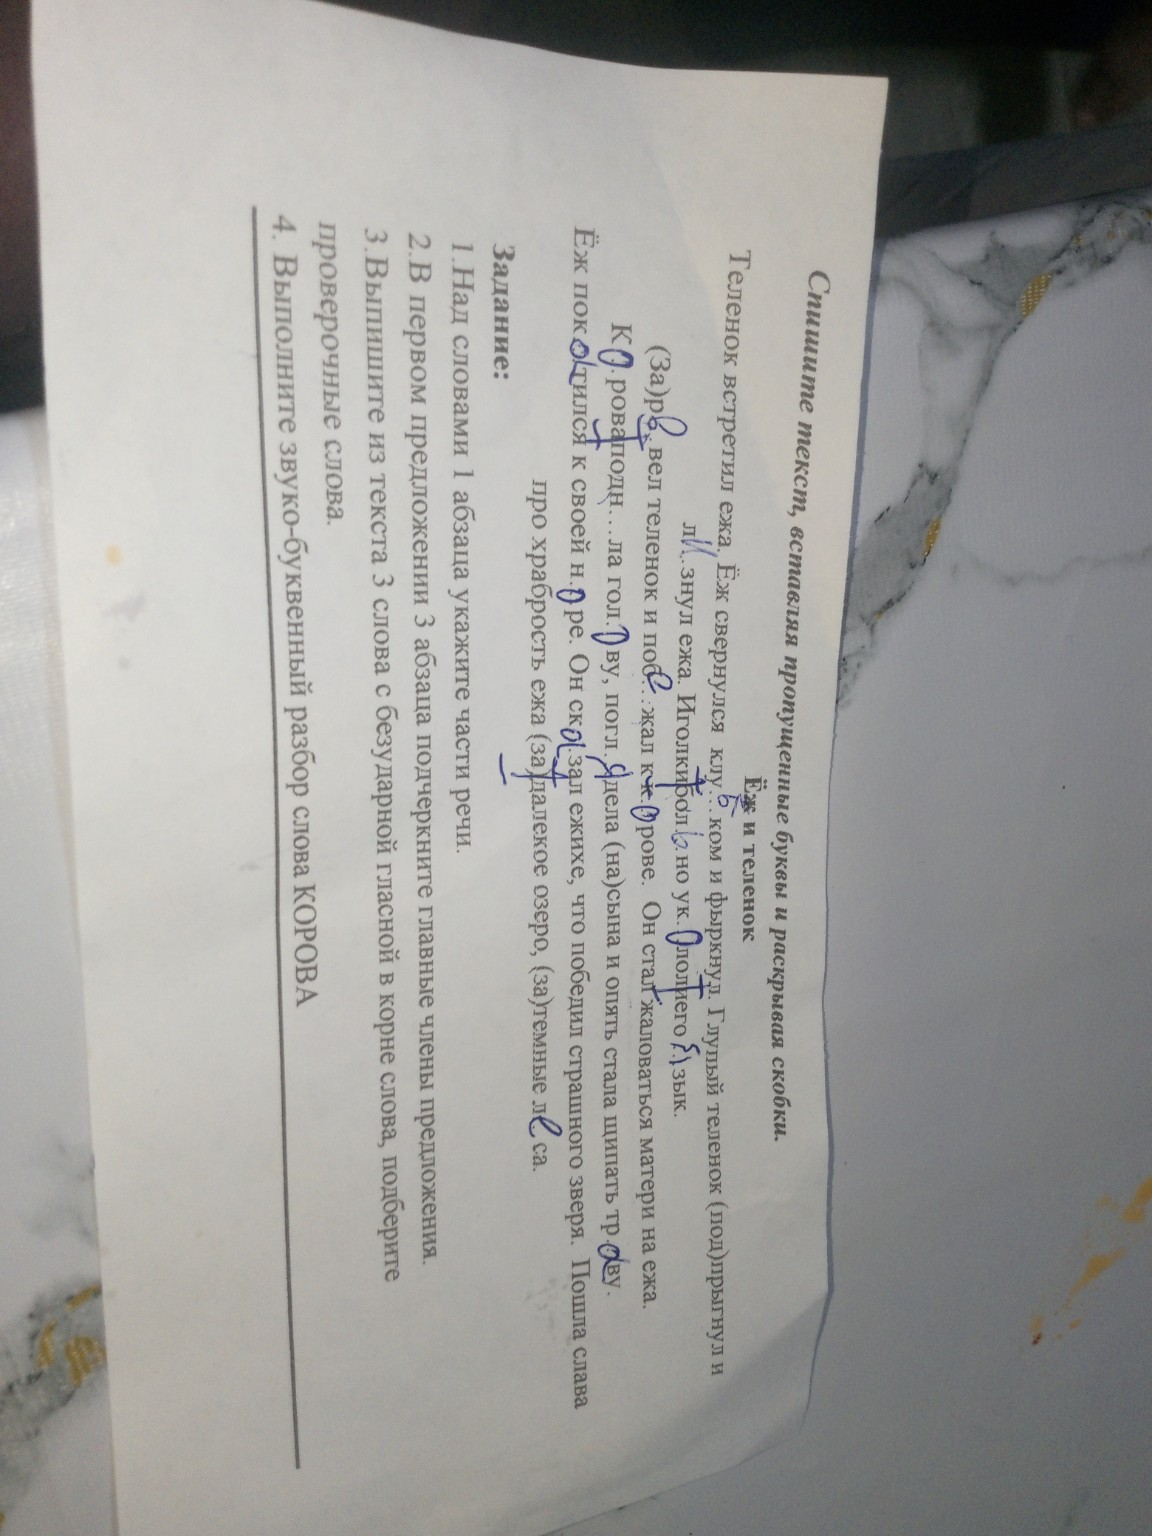 Спишите текст, вставляя пропущенные буквы и раскрывая скобки.
Ёж и теленок
Теленок встретил ежа. Ёж свернулся клу...б ком и фыркнул. Глупый теленок (под)прыгнул и
ли.знул ежа. Иголкибольно ук.ололиего язык.
(За)ре.вел теленок и побе...жал к к.орове. Он стал жаловаться матери на ежа.
Ко.роваподн...ла гол.ову, погл.ядела (на)сына и опять стала щипать тр.аву.
Ёж покатился к своей н.оре. Он ска.зал ежихе, что победил страшного зверя. Пошла слава
про храбрость ежа (за)далекое озеро, (за)темные леса.
Задание:
1.Над словами 1 абзаца укажите части речи.
2.В первом предложении 3 абзаца подчеркните главные члены предложения.
3.Выпишите из текста 3 слова с безударной гласной в корне слова, подберите
проверочные слова.
4. Выполните звуко-буквенный разбор слова КОРОВА